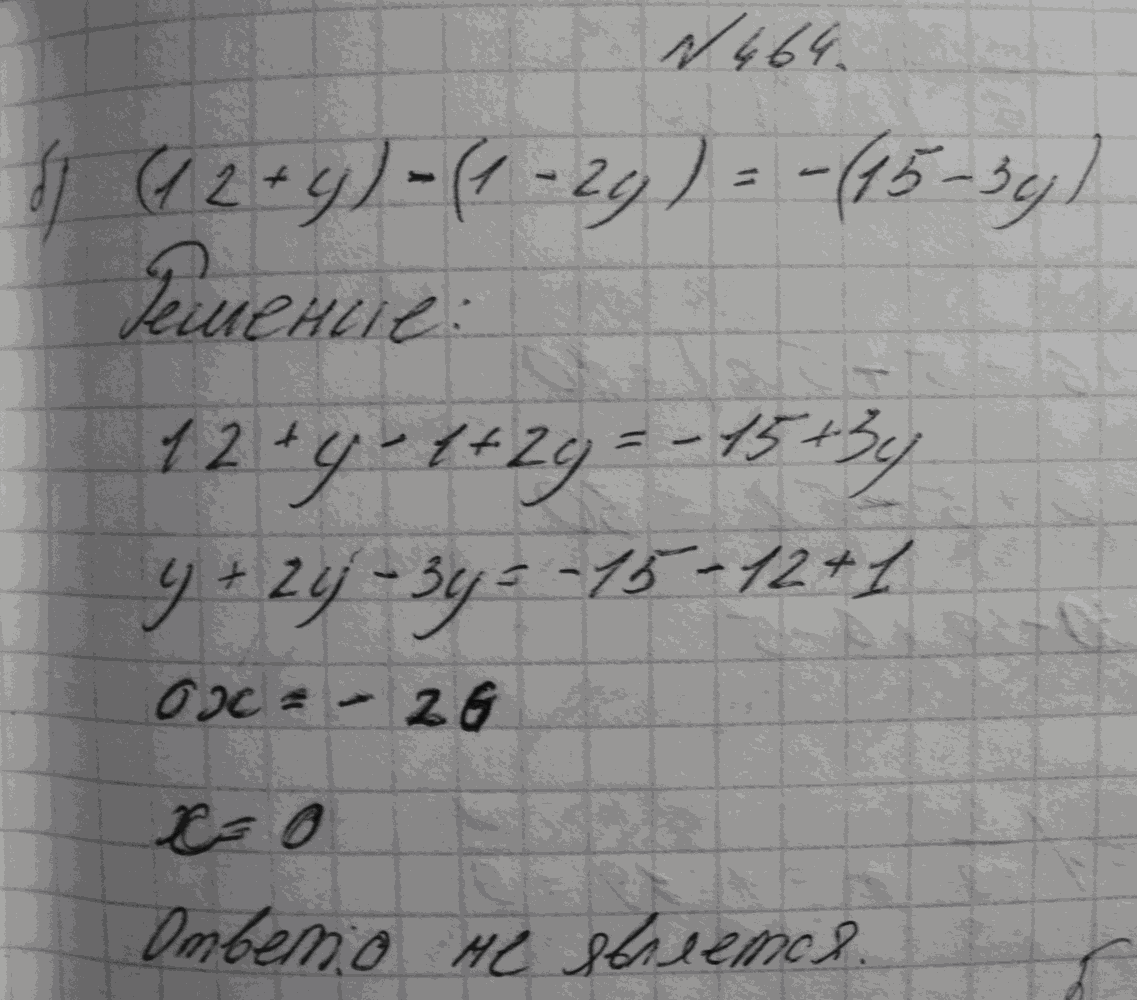 № 464.
б) (12 + y) - (1 - 2y) = -(15 - 3y)
Решение:
12 + y - 1 + 2y = -15 + 3y
y + 2y - 3y = -15 - 12 + 1
0x = - 26
x = 0
Ответ: 0 не является.